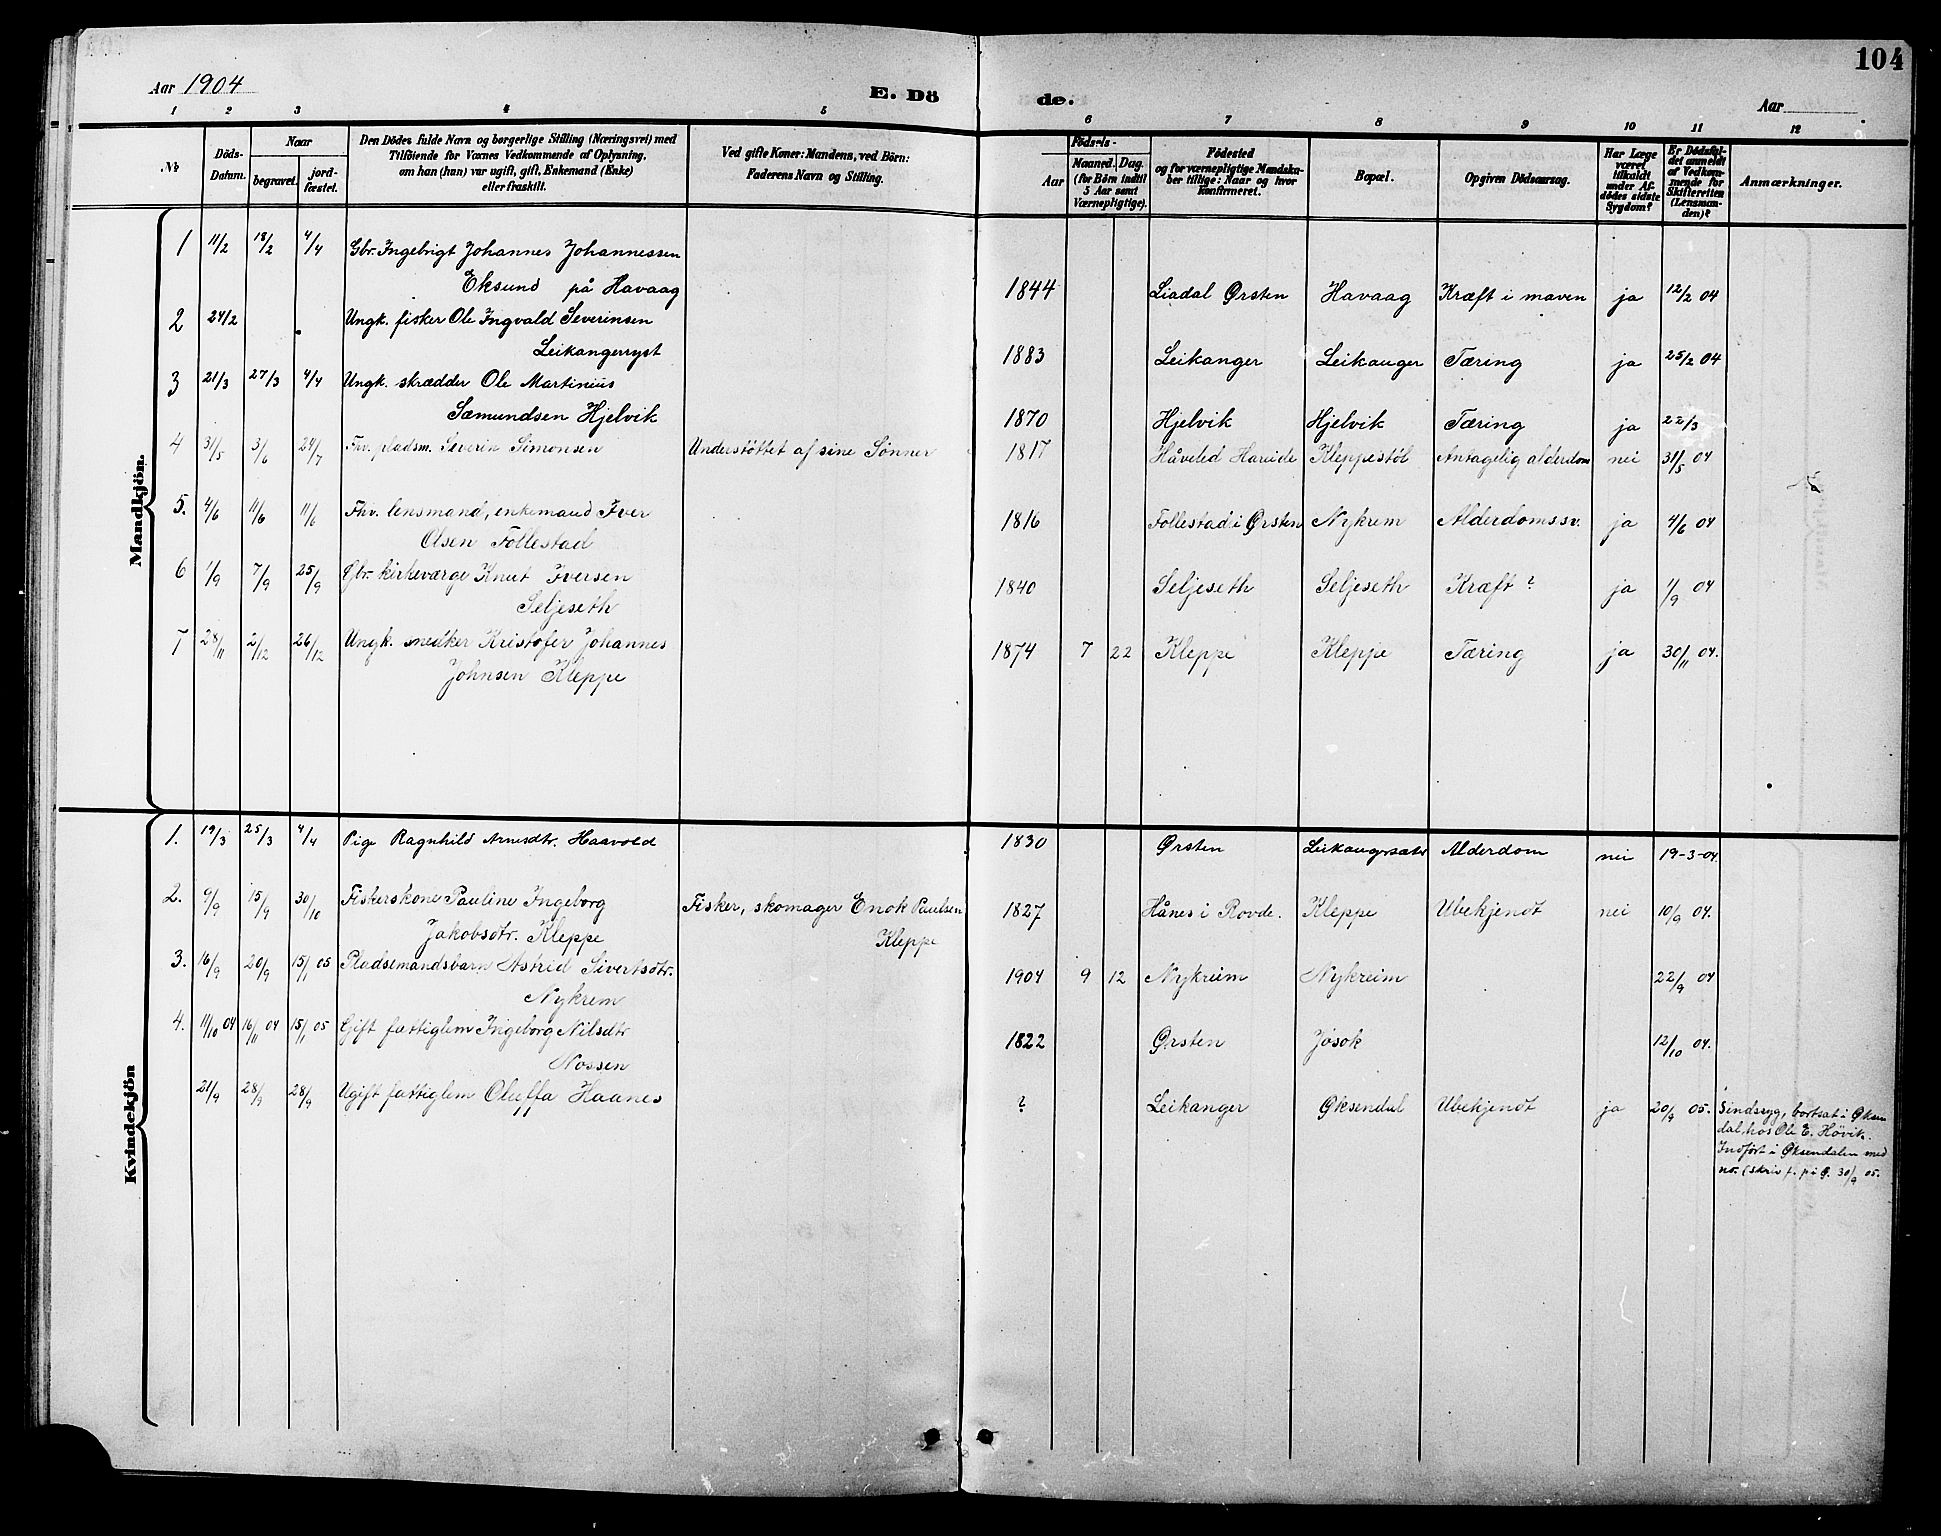 Aar 1904
E. Dö
de.
Aar
104
1 2 3 4 5 6 7 8 9 10 11 12
№
Döds-
Datum.
Naar
begravet.
jord-
fæstet.
Den Dödes fulde Navn og borgerlige Stilling (Næringsvei) med
Tilföiende for Voxnes Vedkommende af Oplysning,
om han (hun) var ugift, gift, Enkemand (Enke)
eller fraskilt.
Ved gifte Koner: Mandens, ved Börn:
Faderens Navn og Stilling.
Födsels-
Aar
Maaned. Dag.
(for Börn indtil
5 Aar samt
Værnepligtige).
Födested
og for værnepligtige Mandska-
ber tillige: Naar og hvor
konfirmeret.
Bopæl.
Opgiven Dödsaarsag.
Har Læge
været
tilkaldt
under Af-
dödes sidste
Sygdom?
Er Dödsfal-
det anmeldt
af Vedkom-
mende for
Skifteretten
(Lensman-
den)?
Anmærkninger.
Mandkjön.
1 11/2 18/2 4/4 Gbr. Ingebrigt Johannes Johannessen
Eksund på Havaag 1844 Liadal Ørsten Havaag Kræft i maven ja 12/2 04
2 24/2 Ungk. fisker Ole Ingvald Severinsen
Leikangerryst 1883 Leikanger Leikanger Tæring ja 25/2 04
3 21/3 27/3 4/4 Ungk. skrædder Ole Martinius
Sæmundsen Hjelvik 1870 Hjelvik Hjelvik Tæring ja 22/3
4 31/5 3/6 24/7 Fhv. pladsm. Severin Simonsen Understöttet af sine Sønner 1817 Håveled Hareide Kleppestöl Antagelig alderdom nei 31/5 04
5. 4/6 11/6 11/6 Fhv. lensmand, enkemand Iver
Olsen Follestad 1816 Follestad i Ørsten Nykrem Alderdomssv. ja 4/6 04
6 1/9 7/9 25/9 Gbr. kirkeværge Knut Iversen
Seljeseth 1840 Seljeseth Seljeseth Kræft? ja 1/9 04
7 28/11 2/12 26/12 Ungk. snedker Kristofer Johannes
Johnsen Kleppe 1874 7 22 Kleppe Kleppe Tæring ja 30/11 04.
Kvindekjön
1. 19/3 25/3 4/4 Pige Ragnhild Arnesdtr. Haavold 1830 Ørsten Leikangersætr Alderdom nei 19-3-04.
2. 9/9 15/9 30/10 Fiskerskone Pauline Ingeborg Fisker, skomager Enok Paulsen 1827 Hånes i Rovde. Kleppe Ubekjendt nei 10/9 04.
Jakobsdtr. Kleppe Kleppe
3. 16/9 20/9 15/1 05 Pladsemandsbarn Astrid Sivertsdtr.
Nykrem 1904 9 12 Nykreim Nykreim 22/9 04
4. 11/10 04 16/11 04 15/1 05 Gift fattiglem Ingeborg Nilsdtr
Nossen 1822 Ørsten Jösok 12/10 04.
21/9 28/9 28/9 Ugift fattiglem Oluffa Haanes ? Leikanger Øksendal Ubekjendt ja 20/9 05. Sindssyg, bortsat i Øksen
dal hos Ole E. Hövik.
Indfört i Øksendalen med
no. (skriv f. på Ø. 30/9 05.